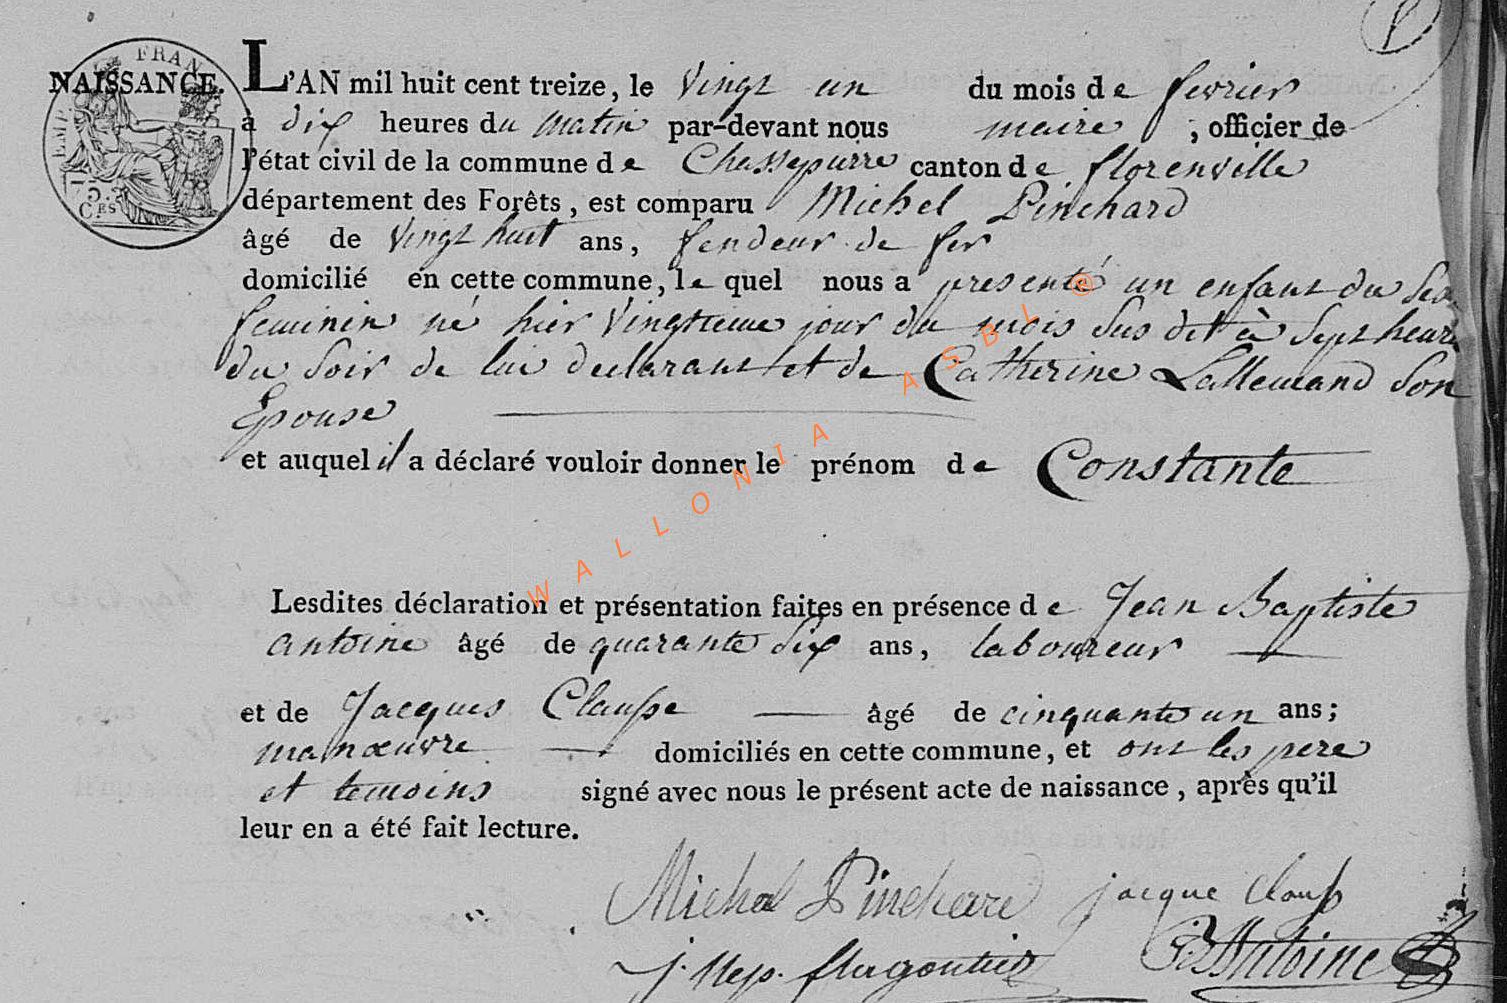 NAISSANCE.
EMP. FRAN
5.
C.ES
L'AN mil huit cent treize, le vingt un du mois de fevrier
à dix heures du matin par-devant nous maire, officier de
l'état civil de la commune de Chassepierre canton de florenville
département des Forêts, est comparu Michel Pinchard
âgé de vingt huit ans, fendeur de fer
domicilié en cette commune, lequel nous a presenté un enfant du Sexe
feminin né hier vingtieme jour du mois Sus dit à Sept heures
du Soir de lui declarant et de Catherine Lallemand Son
Epouse
et auquel il a déclaré vouloir donner le prénom de Constante
Lesdites déclaration et présentation faites en présence de Jean Baptiste
antoine âgé de quarante Six ans, laboureur
et de Jacques Clausse âgé de cinquante un ans;
manœuvre domiciliés en cette commune, et ont les pere
et temoins signé avec nous le présent acte de naissance, après qu'il
leur en a été fait lecture.
Michel Pinchard jacque Claus
Antoine
WALLONIA ASBL ®